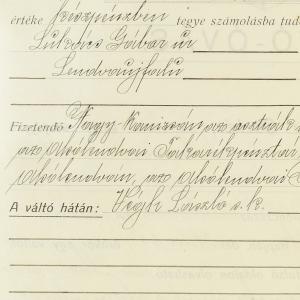 értéke készpénzben tegye számolásba tud
Lukács Gábor úr
Lendvaujfalu
Fizetendő Nagy-Kanizsán, az osztrák
az Alsólendvai Takarékpénztár
Alsólendván, az alsólendvai
A váltó hátán: Végh László s. k.